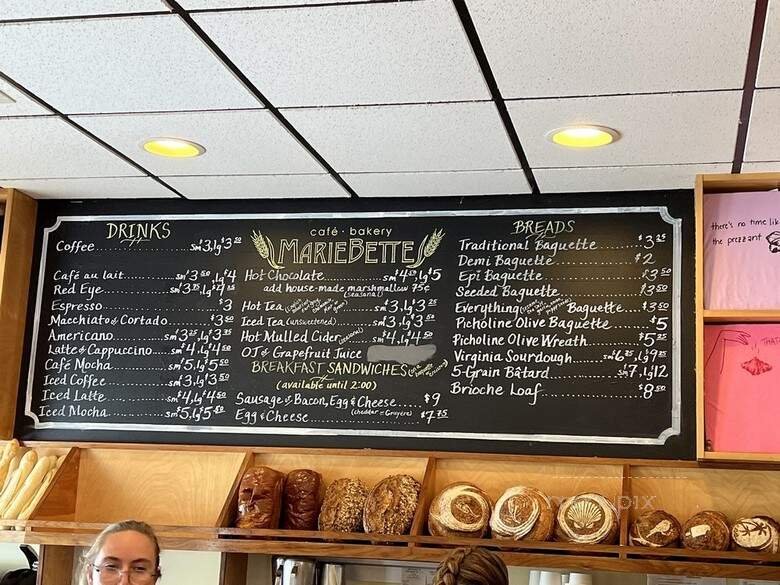 DRINKS
Coffee sm $3, lg $3.50
Café au lait sm $3.50, lg $4
Red Eye sm $3.75, lg $4.25
Espresso $3
Macchiato & Cortado $3.50
Americano sm $3.25, lg $3.75
Latte & Cappuccino sm $4, lg $4.50
Café Mocha sm $5, lg $5.50
Iced Coffee sm $3, lg $3.50
Iced Latte sm $4, lg $4.50
Iced Mocha sm $5, lg $5.50
café · bakery
MARIEBETTE
Hot Chocolate sm $4.50, lg $5
add house-made marshmallow 75¢
(seasonal)
Hot Tea sm $3, lg $3.25
Iced Tea (unsweetened) sm $3, lg $3.50
Hot Mulled Cider (seasonal) sm $4, lg $4.50
OJ & Grapefruit Juice
BREAKFAST SANDWICHES
(available until 2:00)
Sausage or Bacon, Egg & Cheese $9
Egg & Cheese (cheddar or Gruyère) $7.75
BREADS
Traditional Baguette $3.25
Demi Baguette $2
Epi Baguette $3.50
Seeded Baguette $3.50
Everything Baguette $3.50
Picholine Olive Baguette $5
Picholine Olive Wreath $5.25
Virginia Sourdough sm $6.75, lg $9.75
5-Grain Bâtard sm $7, lg $12
Brioche Loaf $8.50
there's no time like
the prezzant
THAT